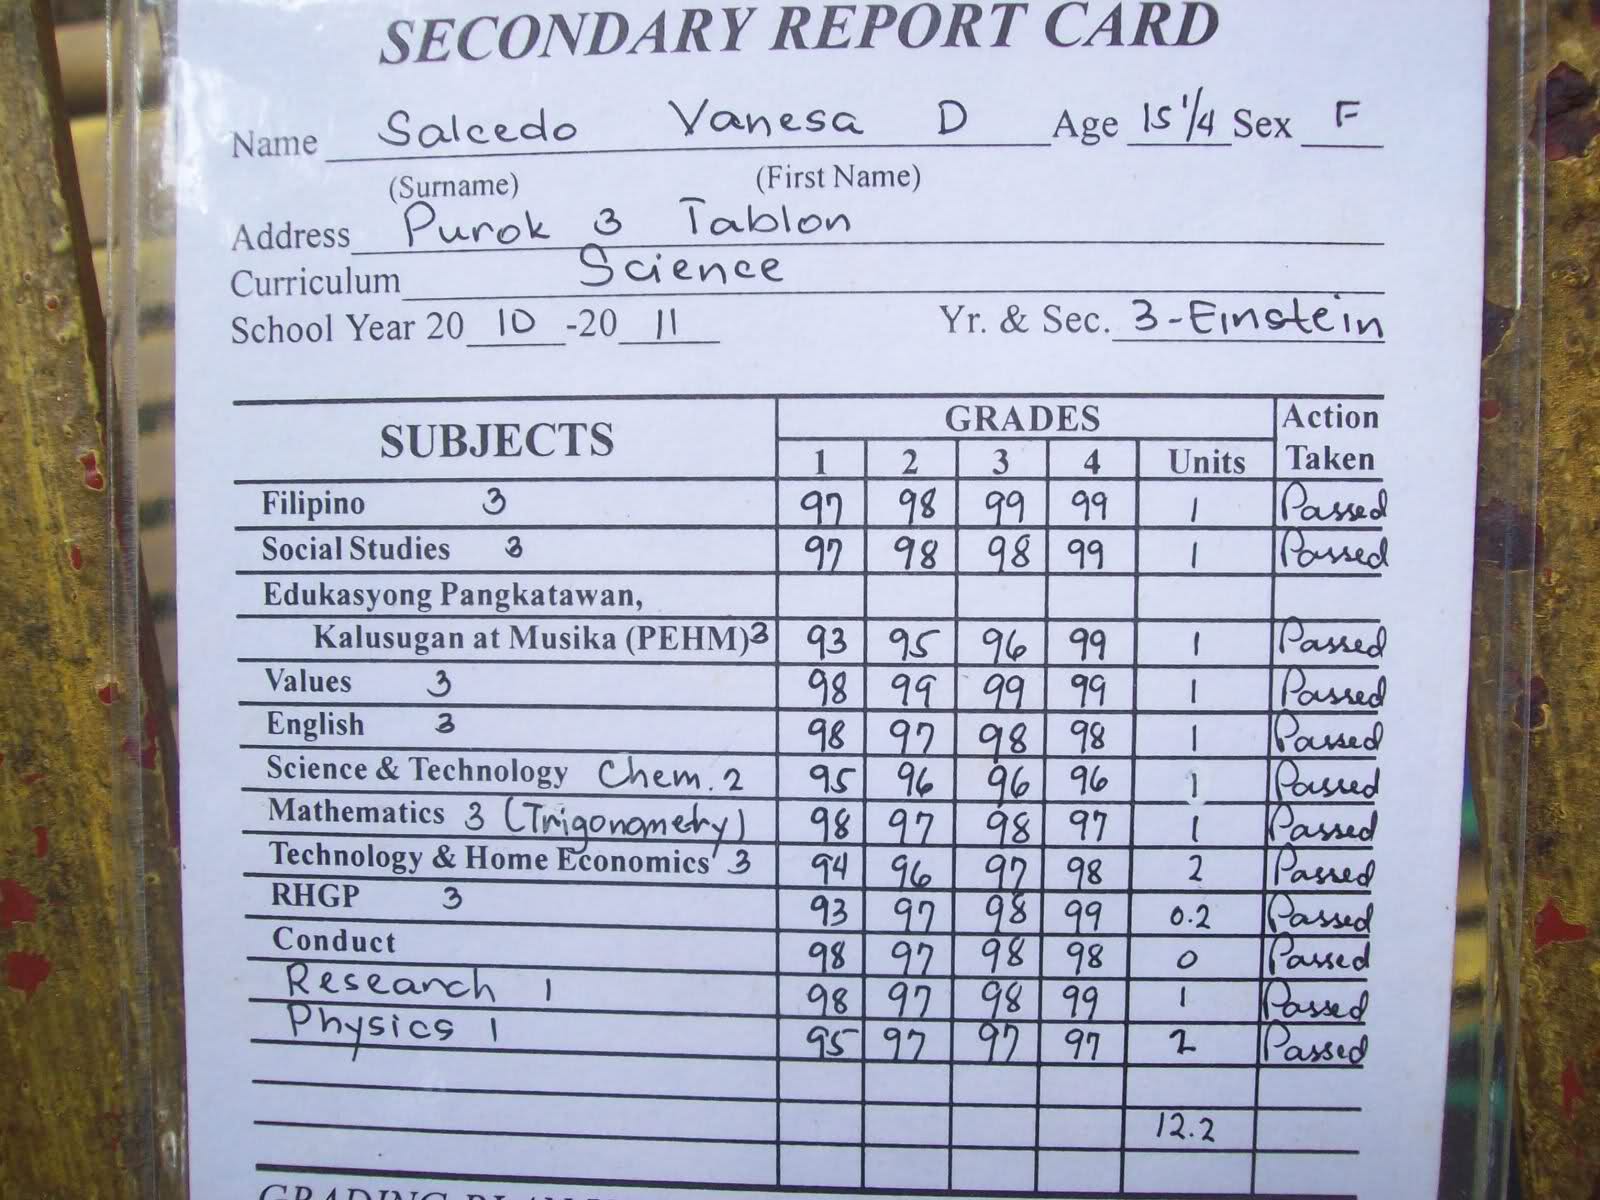 SECONDARY REPORT CARD
Name Salcedo Vanesa D Age 15 1/4 Sex F
(Surname) (First Name)
Address Purok 3 Tablon
Curriculum Science
School Year 20 10 -20 11 Yr. & Sec. 3-Einstein
SUBJECTS GRADES Action Taken
1 2 3 4 Units
Filipino 3 97 98 99 99 1 Passed
Social Studies 3 97 98 98 99 1 Passed
Edukasyong Pangkatawan,
Kalusugan at Musika (PEHM) 3 93 95 96 99 1 Passed
Values 3 98 99 99 99 1 Passed
English 3 98 97 98 98 1 Passed
Science & Technology Chem. 2 95 96 96 96 1 Passed
Mathematics 3 (Trigonometry) 98 97 98 97 1 Passed
Technology & Home Economics 3 94 96 97 98 2 Passed
RHGP 3 93 97 98 99 0.2 Passed
Conduct 98 97 98 98 0 Passed
Research 1 98 97 98 99 1 Passed
Physics 1 95 97 97 97 2 Passed
12.2